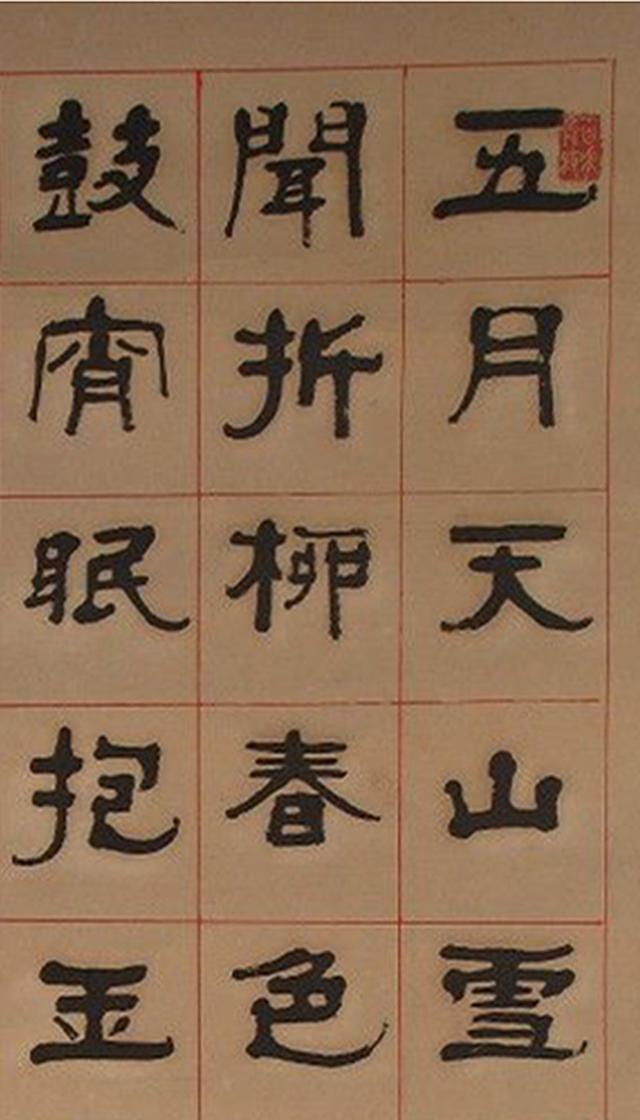 五月天山雪
聞折柳春色
鼓宵眠抱金